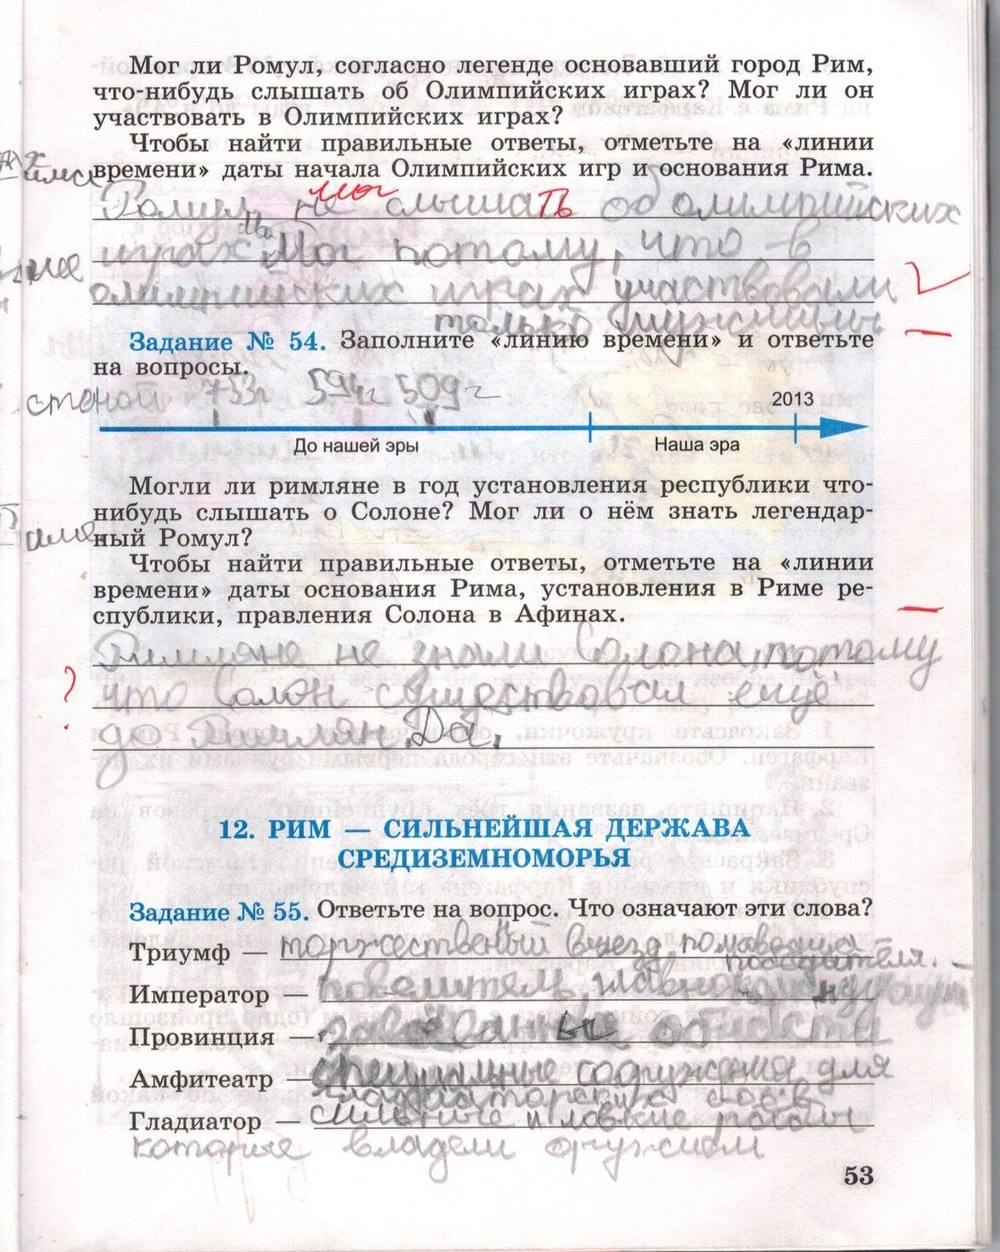 Мог ли Ромул, согласно легенде основавший город Рим,
что-нибудь слышать об Олимпийских играх? Мог ли он
участвовать в Олимпийских играх?
Чтобы найти правильные ответы, отметьте на «линии
времени» даты начала Олимпийских игр и основания Рима.
мог
Ромул не слышать об олимпийских
играх два Мог потому, что в
олимпийских играх участвовали
только мужчины.
Задание № 54. Заполните «линию времени» и ответьте
на вопросы.
стеной 753г 594г 509г
2013
До нашей эры Наша эра
Могли ли римляне в год установления республики что-
нибудь слышать о Солоне? Мог ли о нём знать легендар-
ный Ромул?
Чтобы найти правильные ответы, отметьте на «линии
времени» даты основания Рима, установления в Риме ре-
спублики, правления Солона в Афинах.
Римляне не знали Солона, потому
? что Солон существовал ещё
до Римлян. Да.
12. РИМ — СИЛЬНЕЙШАЯ ДЕРЖАВА
СРЕДИЗЕМНОМОРЬЯ
Задание № 55. Ответьте на вопрос. Что означают эти слова?
Триумф — торжественный въезд
победителя.
Император — повелитель, главнокомандующий
Провинция — завоёванные области
Амфитеатр — специальные сооружения для
гладиаторских боёв
Гладиатор — сильные и ловкие рабы
которые владели оружием
53